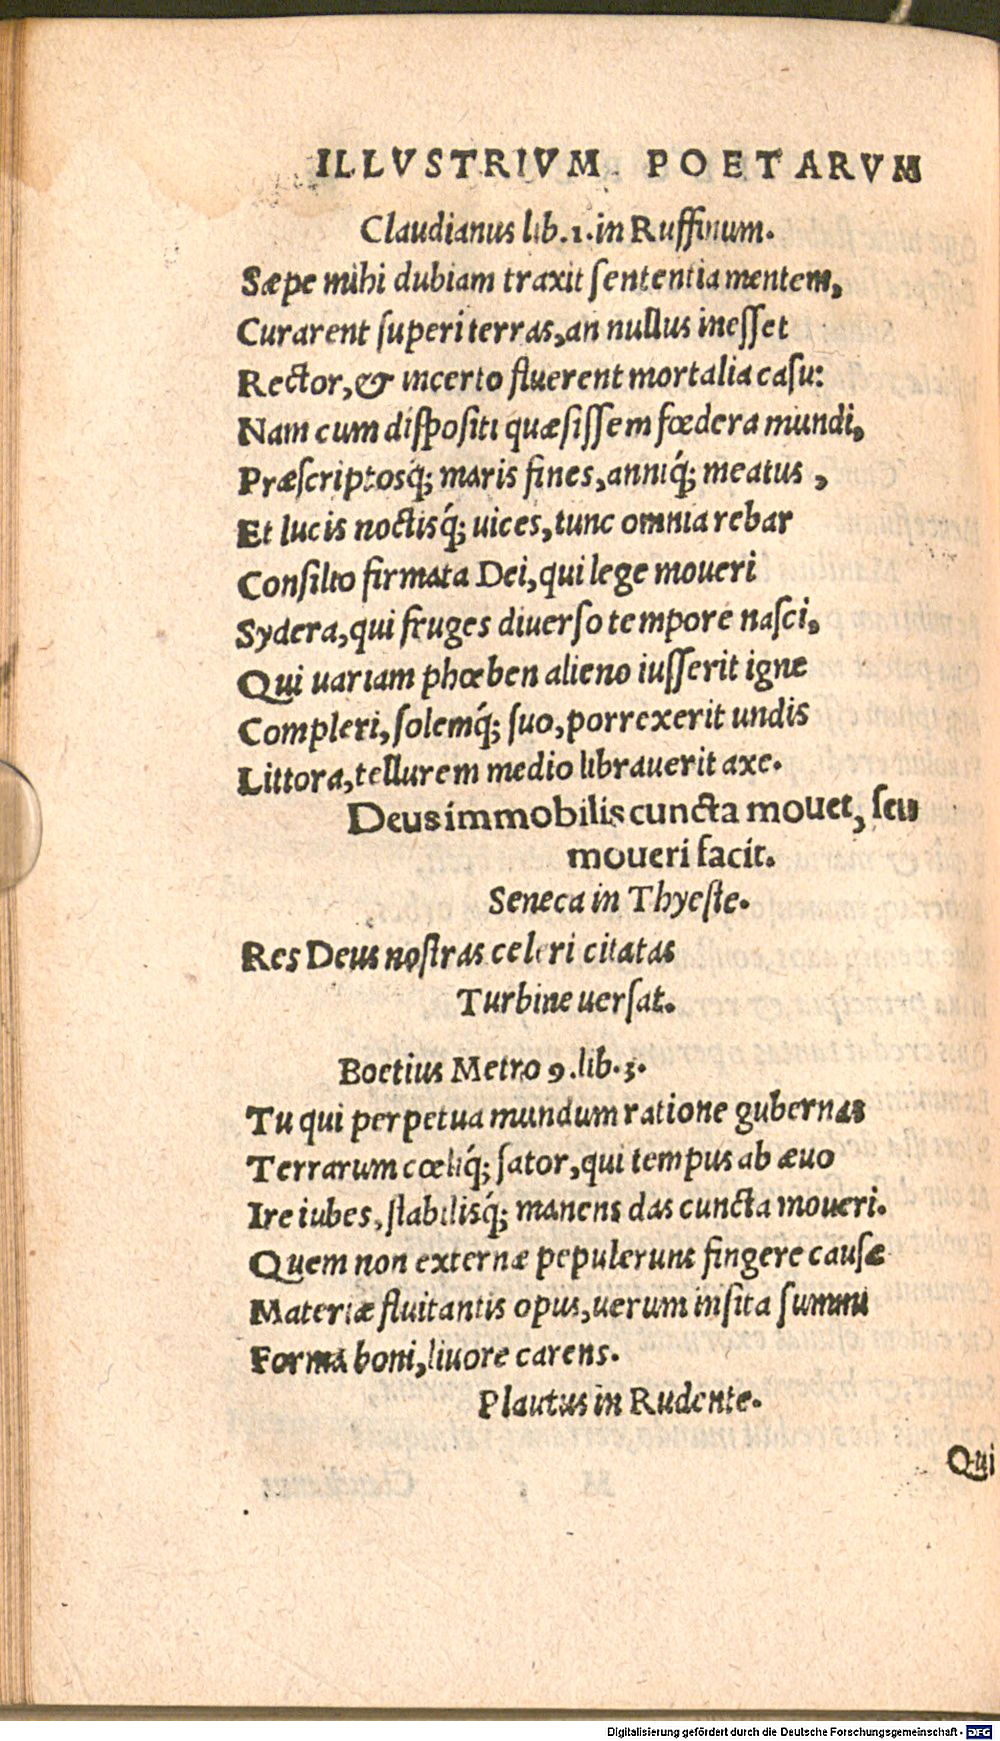 ILLVSTRIVM POETARVM
Claudianus lib.1.in Ruffinum.
Sæpe mihi dubiam traxit ſententia mentem,
Curarent ſuperi terras,an nullus ineſſet
Rector,& incerto fluerent mortalia caſu:
Nam cum diſpoſiti quæſiſſem fœdera mundi,
Præſcriptosq́; maris fines,anniq́; meatus ,
Et lucis noctisq́; uices,tunc omnia rebar
Conſilio firmata Dei,qui lege moueri
Sydera,qui fruges diuerſo tempore naſci,
Qui uariam phœben alieno iuſſerit igne
Compleri,ſolemq́; ſuo,porrexerit undis
Littora,tellurem medio librauerit axe.
Deus immobilis cuncta mouet, ſeu
moueri facit.
Seneca in Thyeſte.
Res Deus noſtras celeri citatas
Turbine uerſat.
Boetius Metro 9.lib.3.
Tu qui perpetua mundum ratione gubernas
Terrarum cœliq́; ſator,qui tempus ab æuo
Ire iubes,ſtabilisq́; manens das cuncta moueri.
Quem non externæ pepulerunt fingere cauſæ
Materiæ fluitantis opus,uerum inſita ſummi
Forma boni,liuore carens.
Plautus in Rudente.
Qui
Digitalisierung gefördert durch die Deutsche Forschungsgemeinschaft - DFG